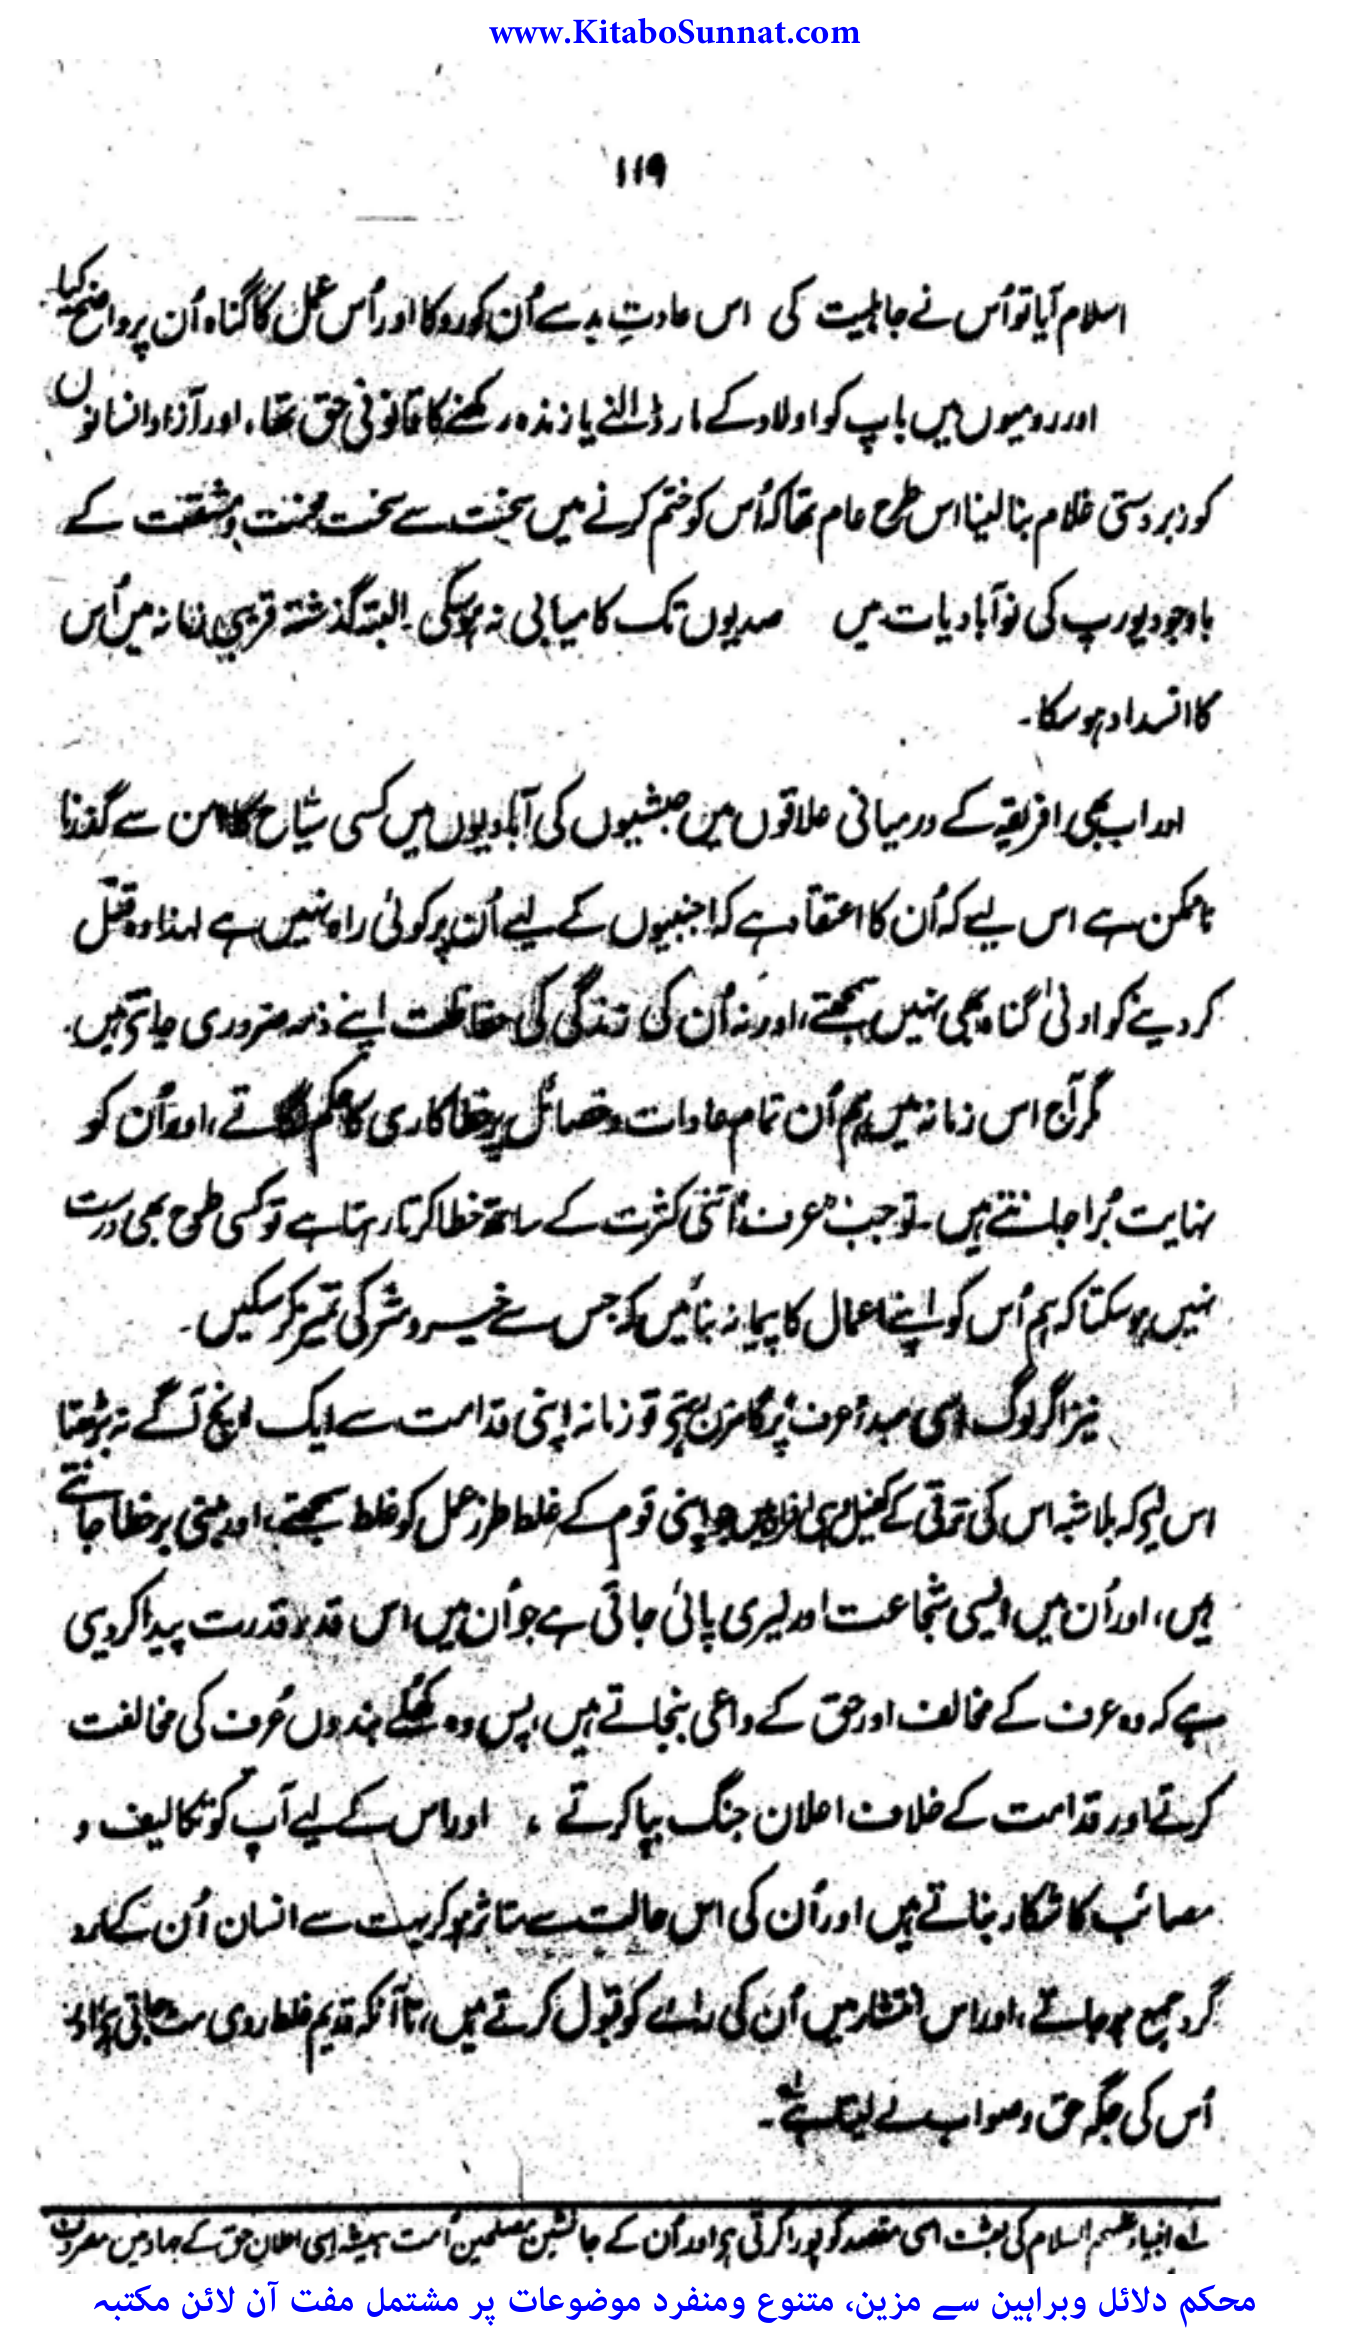 www.KitaboSunnat.com
۱۱۹
اسلام آیا تو اُس نے جاہلیت کی اس عادتِ بد سے اُن کو روکا اور اُس عمل کا گناہ اُن پر واضح کیا۔
اور رومیوں میں باپ کو اولاد کے مار ڈالنے یا زندہ رکھنے کا قانونی حق تھا، اور آزاد انسانوں
کو زبردستی غلام بنا لینا اس طرح عام تھا کہ اُس کو ختم کرنے میں سخت سے سخت محنت و مشقت کے
باوجود یورپ کی نوآبادیات میں صدیوں تک کامیابی نہ ہو سکی۔ البتہ گذشتہ قریبی زمانہ میں اُس
کا انسداد ہو سکا۔
اور اب بھی افریقہ کے درمیانی علاقوں میں حبشیوں کی آبادیوں میں کسی سیّاح کا امن سے گذرنا
ناممکن ہے اس لیے کہ اُن کا اعتقاد ہے کہ اجنبیوں کے لیے اُن پر کوئی راہ نہیں ہے لہذا وہ قتل
کر دینے کو ادنیٰ گناہ بھی نہیں سمجھتے، اور نہ اُن کی زندگی کی حفاظت اپنے ذمہ ضروری جانتے ہیں۔
مگر آج اس زمانہ میں ہم اُن تمام عادات و خصائل پر خطا کاری کا حکم لگاتے، اور اُن کو
نہایت بُرا جانتے ہیں۔ تو جب "عرف" اتنی کثرت کے ساتھ خطا کرتا رہتا ہے تو کسی طرح بھی درست
نہیں ہو سکتا کہ ہم اُس کو اپنے اعمال کا پیمانہ بنائیں کہ جس سے خیر و شر کی تمیز کر سکیں۔
نیز اگر لوگ اسی مبدءِ عرف پر گامزن رہتے تو زمانہ اپنی قدامت سے ایک اِنچ آگے نہ بڑھتا
اس لیے کہ بلاشبہ اس کی ترقی کے کفیل وہی افراد ہیں جو اپنی قوم کے غلط طرزِ عمل کو غلط سمجھتے، اور مبنی بر خطا جانتے
ہیں، اور اُن میں ایسی شجاعت اور لیری پائی جاتی ہے جو اُن میں اس قدر قدرت پیدا کر دیتی
ہے کہ وہ عرف کے مخالف اور حق کے داعی بنجاتے ہیں، پس وہ کھُلے بندوں عُرف کی مخالفت
کرتے اور قدامت کے خلاف اعلان جنگ بپا کرتے، اور اس کے لیے آپ کو تکالیف و
مصائب کا شکار بناتے ہیں اور اُن کی اس حالت سے متاثر ہو کر بہت سے انسان اُن کے ارد
گرد جمع ہو جاتے، اور اس انتشار میں اُن کی رائے کو قبول کرتے ہیں، تا آنکہ قدیم غلط روی مٹ جاتی ہے اور
اُس کی جگہ حق و صواب لے لیتا ہے لہ۔
لہ انبیاء علیہم السلام کی بعثت اسی مقصد کو پورا کرتی ہے اور اُن کے جانشین مصلحین اُمت ہمیشہ اِسی اعلانِ حق کے جہاد میں مصروف
محکم دلائل وبراہین سے مزین، متنوع ومنفرد موضوعات پر مشتمل مفت آن لائن مکتبہ